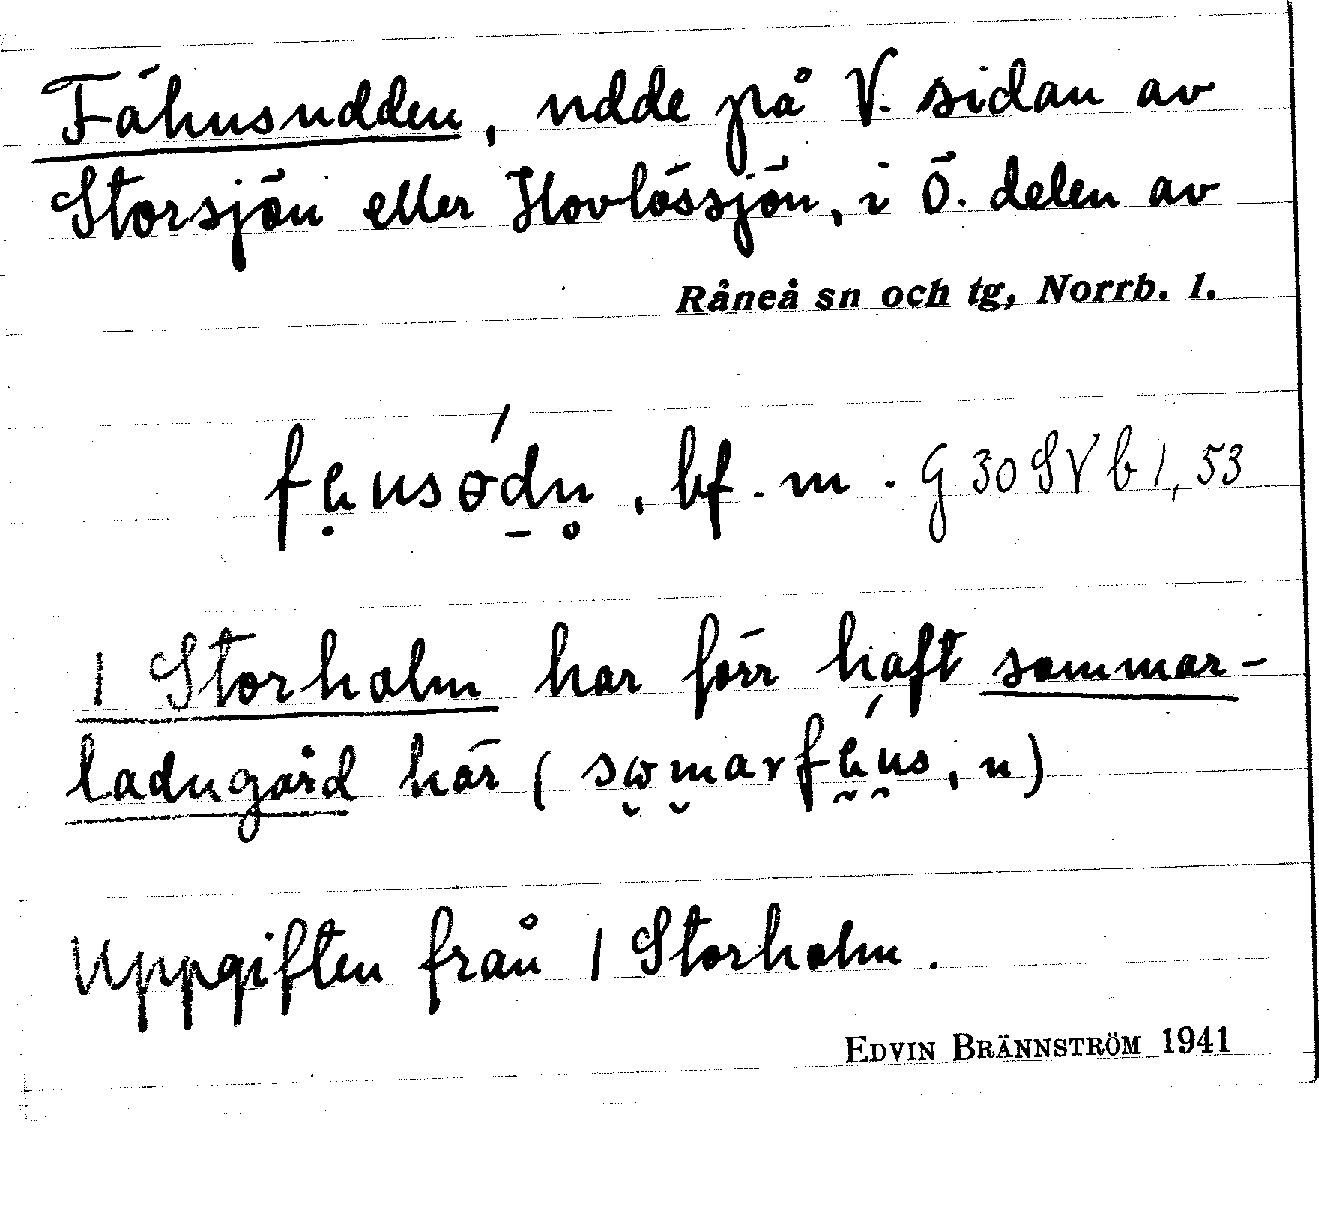 Fähusudden, udde på V. sidan av
Storsjön eller Hovlössjön, i Ö. delen av
Råneå sn och tg, Norrb. l.
bf. m. G 30 SV b 1, 53
1 Storholm har förr haft sommar-
ladugård här (                , n)
Uppgiften från 1 Storholm.
EDVIN BRÄNNSTRÖM 1941